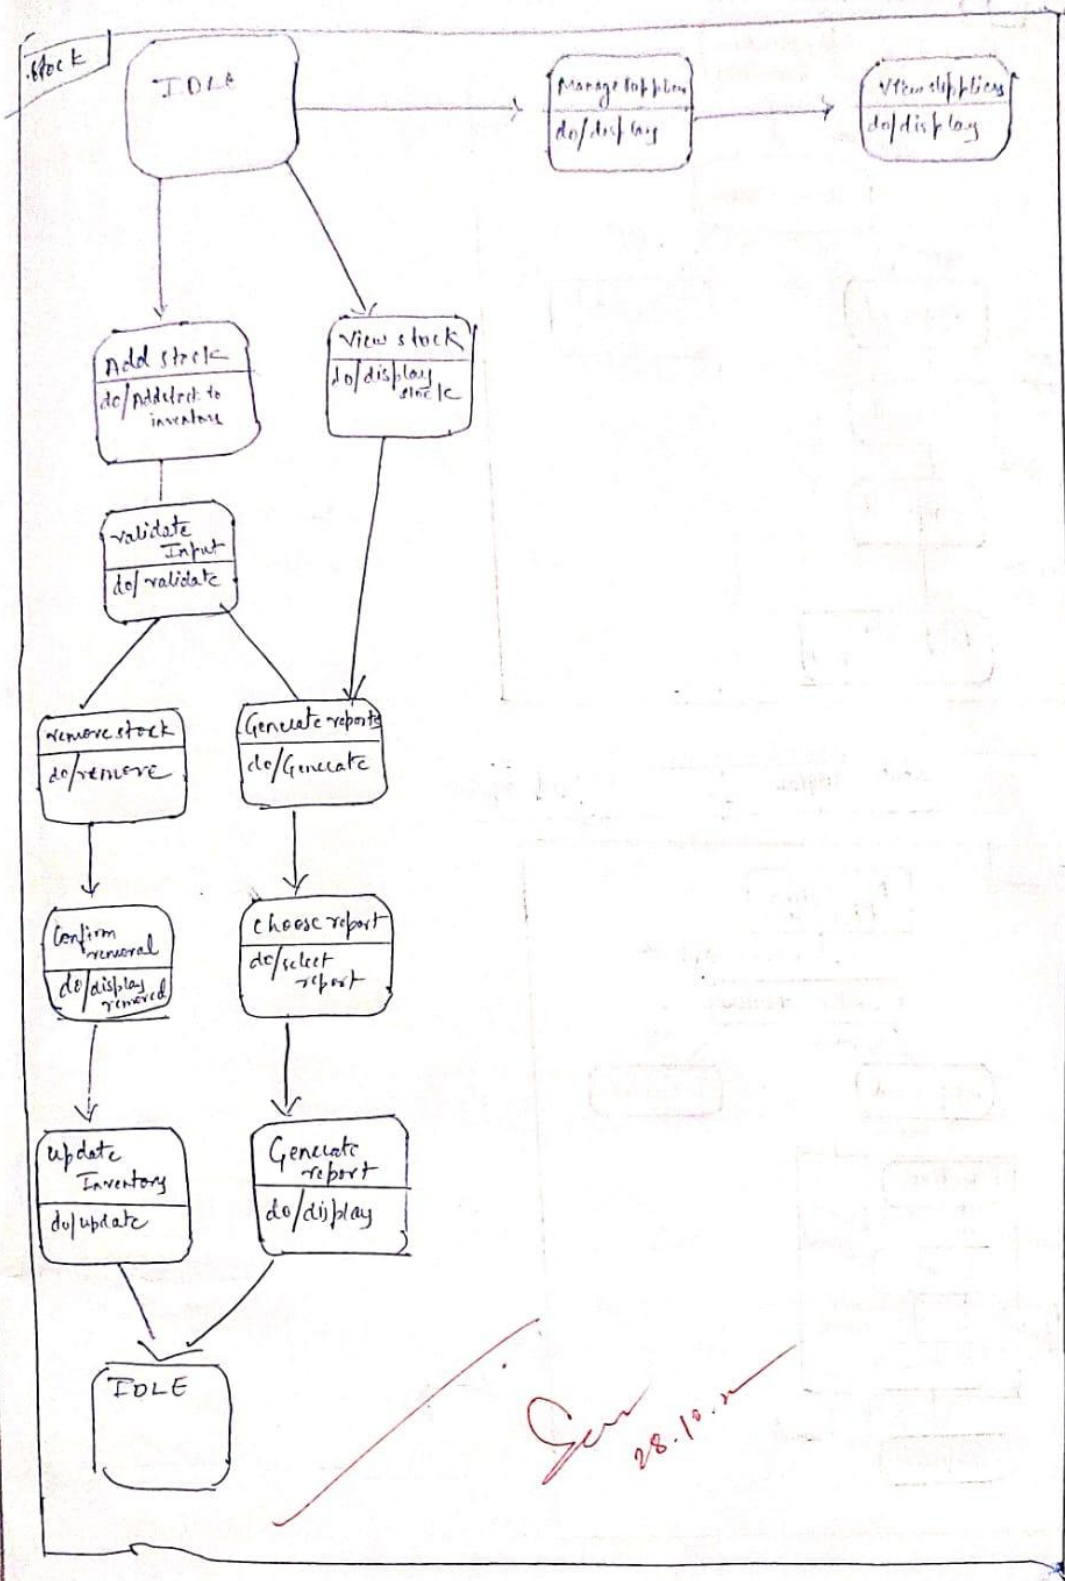 stock
IDLE
Manage suppliers
do/display
View suppliers
do/display
Add stock
do/Addstock to
inventory
View stock
do/display
stock
validate
Input
do/validate
remove stock
do/remove
Generate reports
do/Generate
Confirm
removal
do/display
removed
choose report
do/select
report
update
Inventory
do/update
Generate
report
do/display
IDLE
28.10.